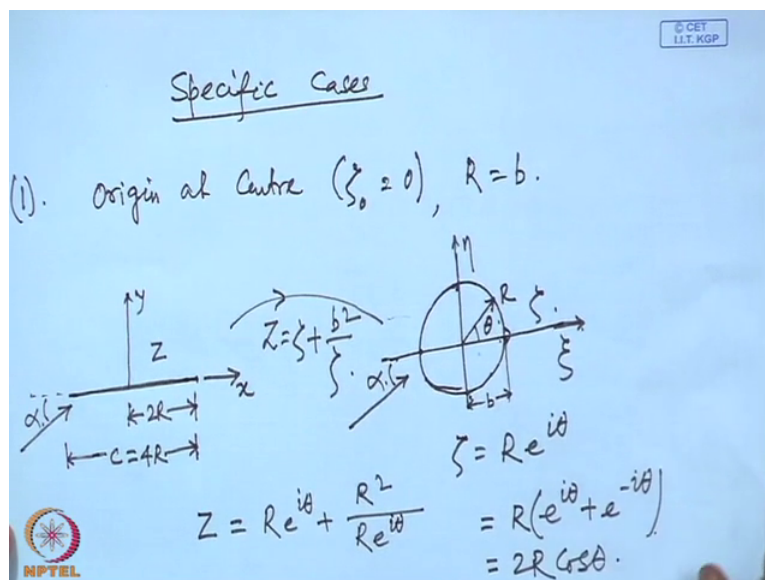 © CET
I.I.T. KGP
Specific Cases
(1). Origin at Centre (ζ₀ = 0), R = b.
y
Z
x
α
2R
C = 4R
Z = ζ + b²/ζ.
η
R
θ
ζ.
ξ
α
b
ζ = Re^{iθ}
Z = Re^{iθ} + R²/Re^{iθ} = R(e^{iθ} + e^{-iθ})
= 2R Cosθ.
NPTEL